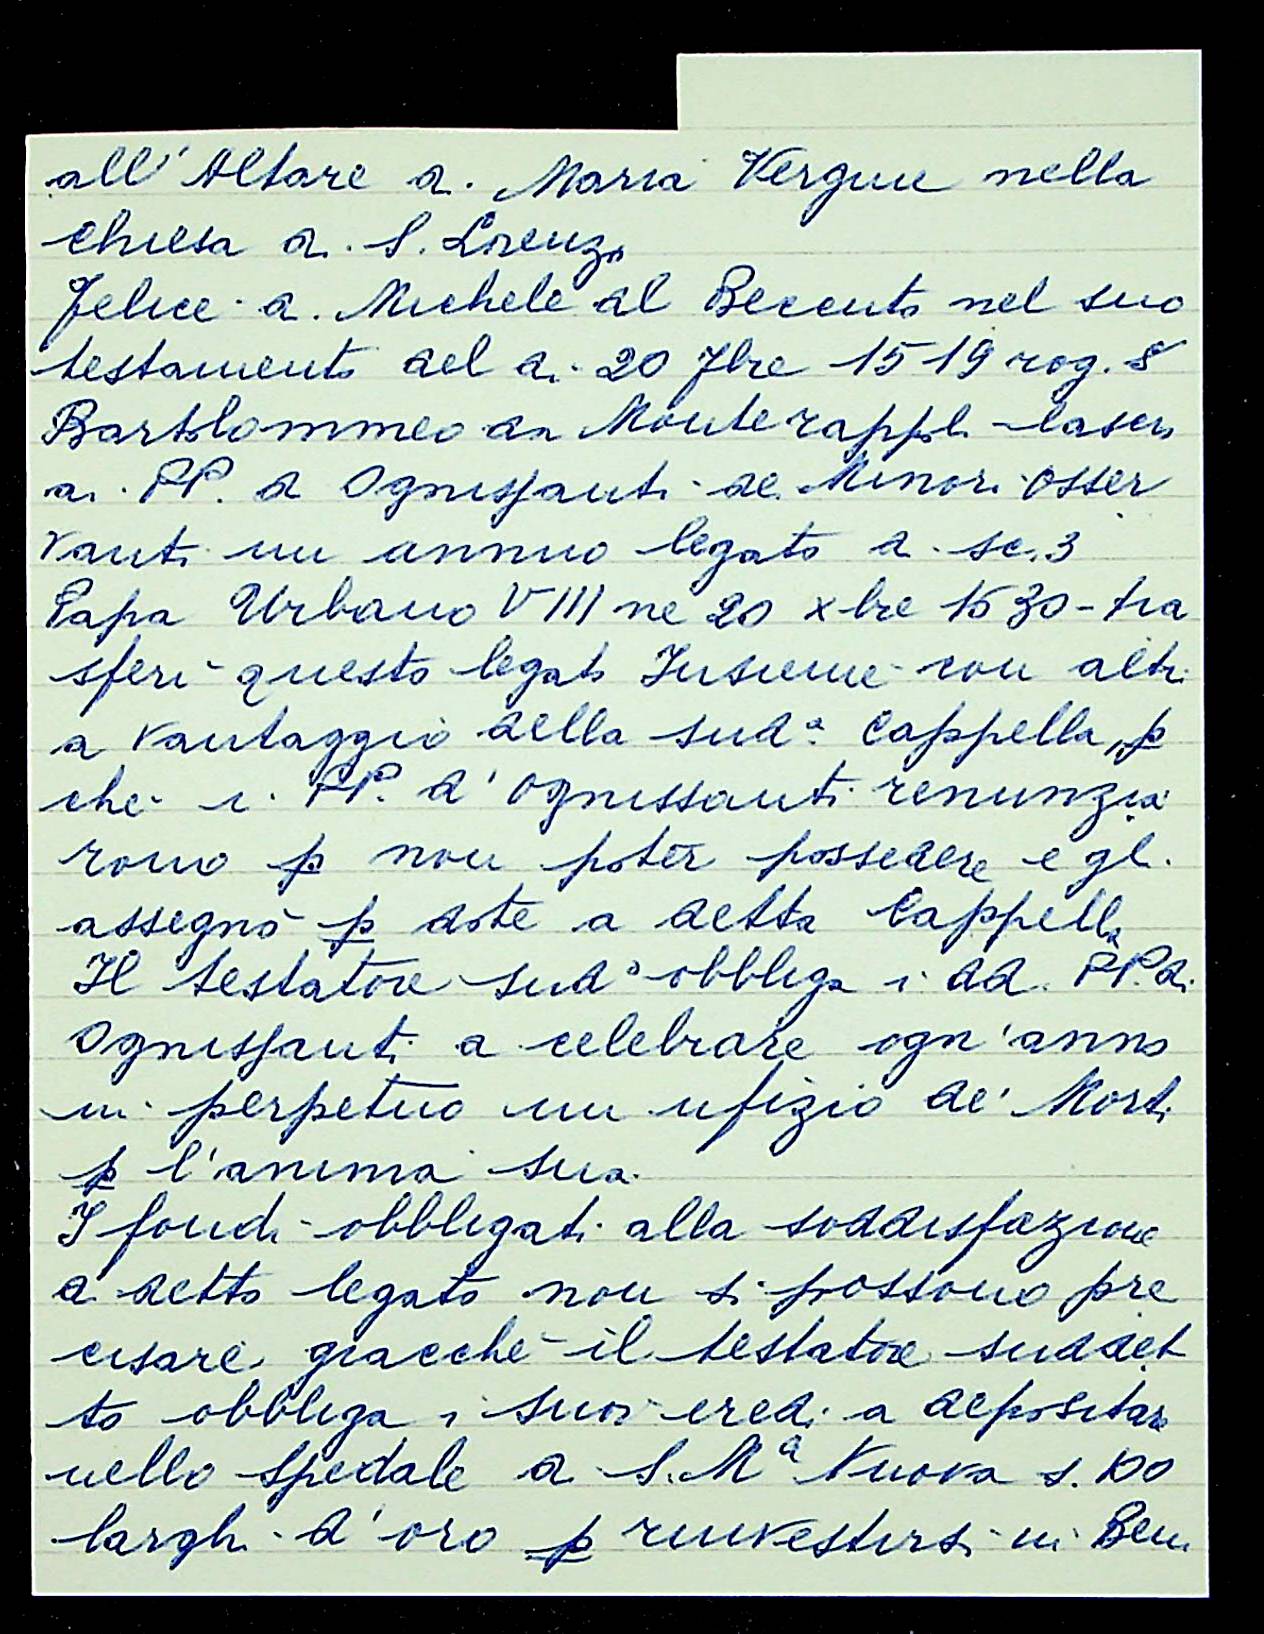 all' Altare di Maria Vergine nella
chiesa di S. Lorenzo
Felice di Michele del Beccuto nel suo
testamento del dì 20 7bre 1519 rog. S
Bartolommeo da Monterappoli lascia
ai PP. di Ognissanti de Minori Osser
vanti un annuo legato di sc. 3
Papa Urbano VIII ne 20 xbre 1530 - tra
sferì questo legato Insieme con altri
a vantaggio della sud.ª Cappella, p
che i PP. d' Ognissanti renunzia
rono p non poter possedere e gli
assegnò p dote a detta Cappella
Il testatore sud.º obbliga i dd. PP. di
Ognissanti a celebrare ogn'anno
in perpetuo un ufizio de' Morti
p l'anima sua
I fondi obbligati alla soddisfazione
di detto legato non si possono pre
cisare giacchè il testatore suddet
to obbliga i suoi eredi a depositare
nello Spedale di S. Mª Nuova s. 100
larghi d' oro p rinvestirsi in Beni